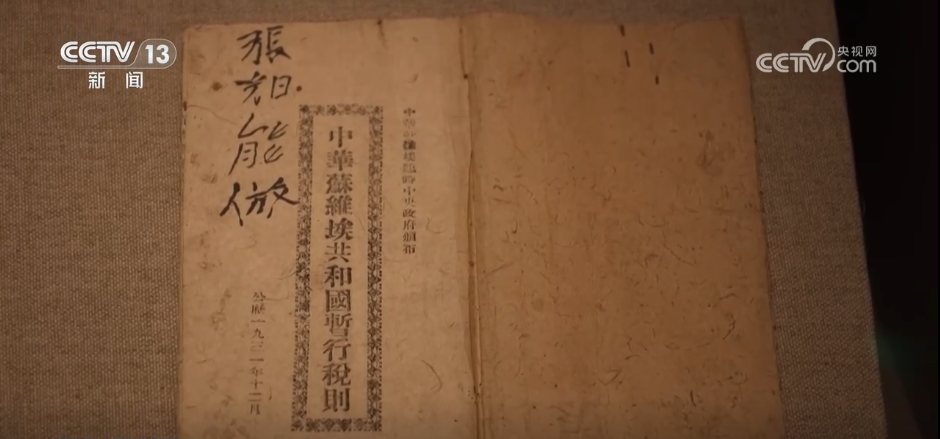 CCTV 13
新闻
央视网
CCTV.com
中華蘇維埃臨時中央政府頒布
中華蘇維埃共和國暫行稅則
公歷一九三一年十二月
張
能
做